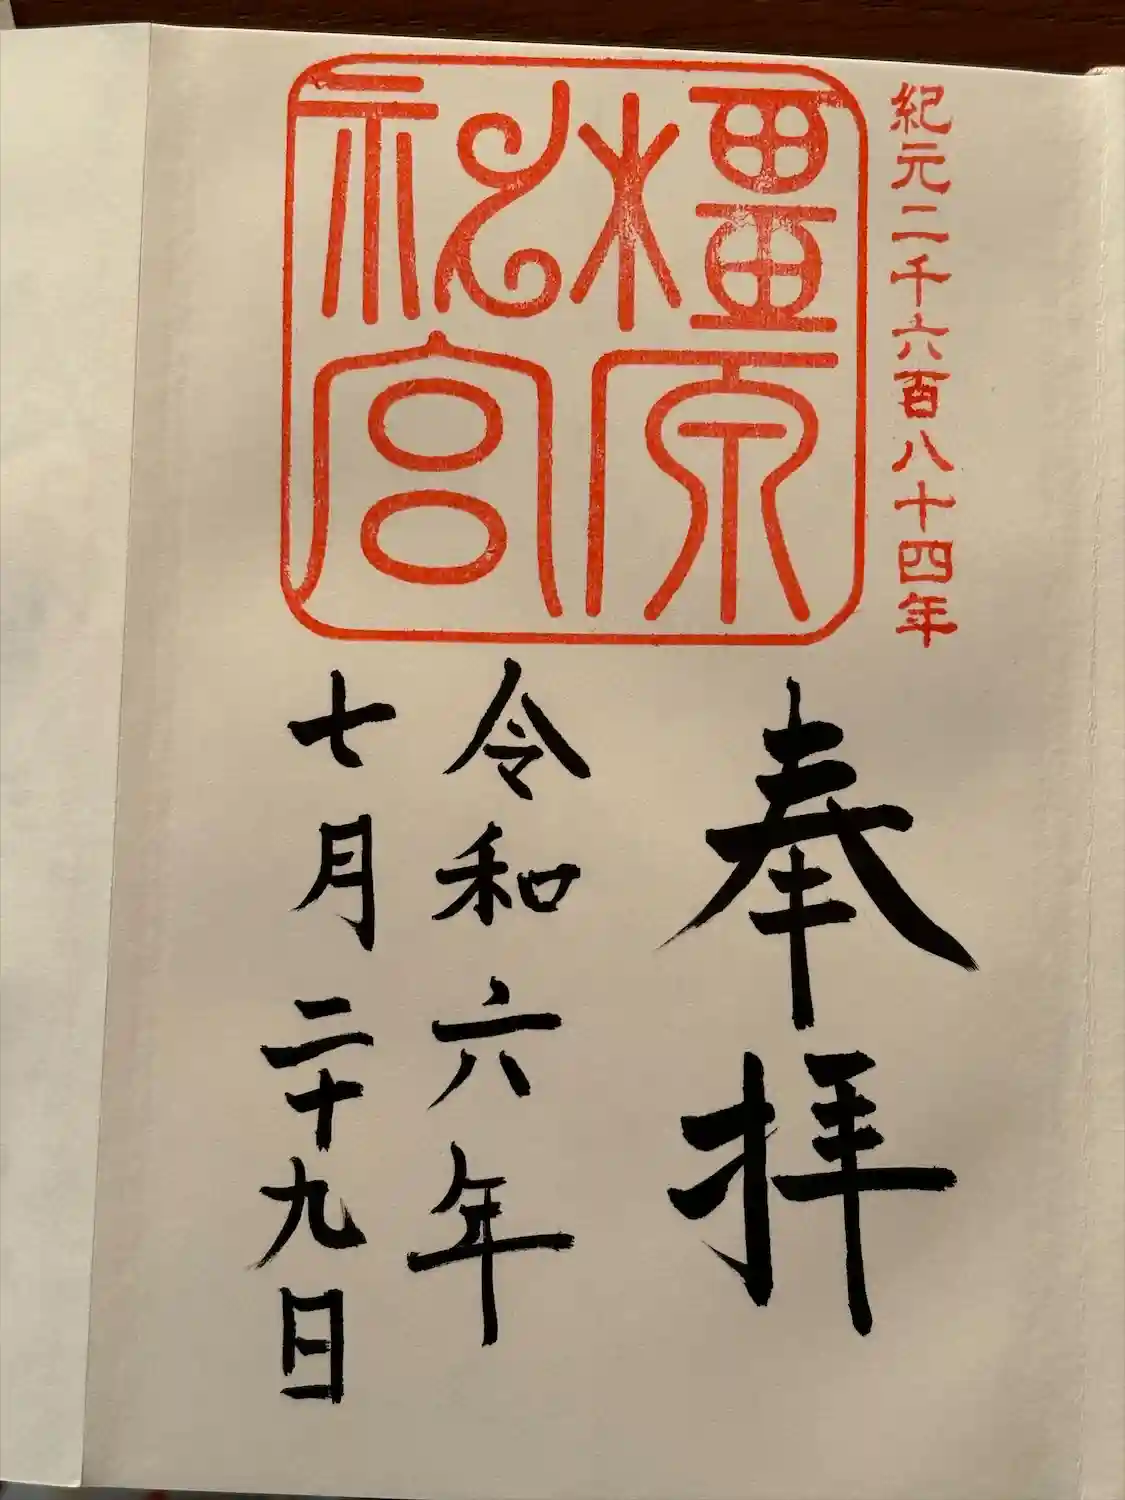 紀元二千六百八十四年
橿原
神宮
奉拝
令和六年
七月二十九日